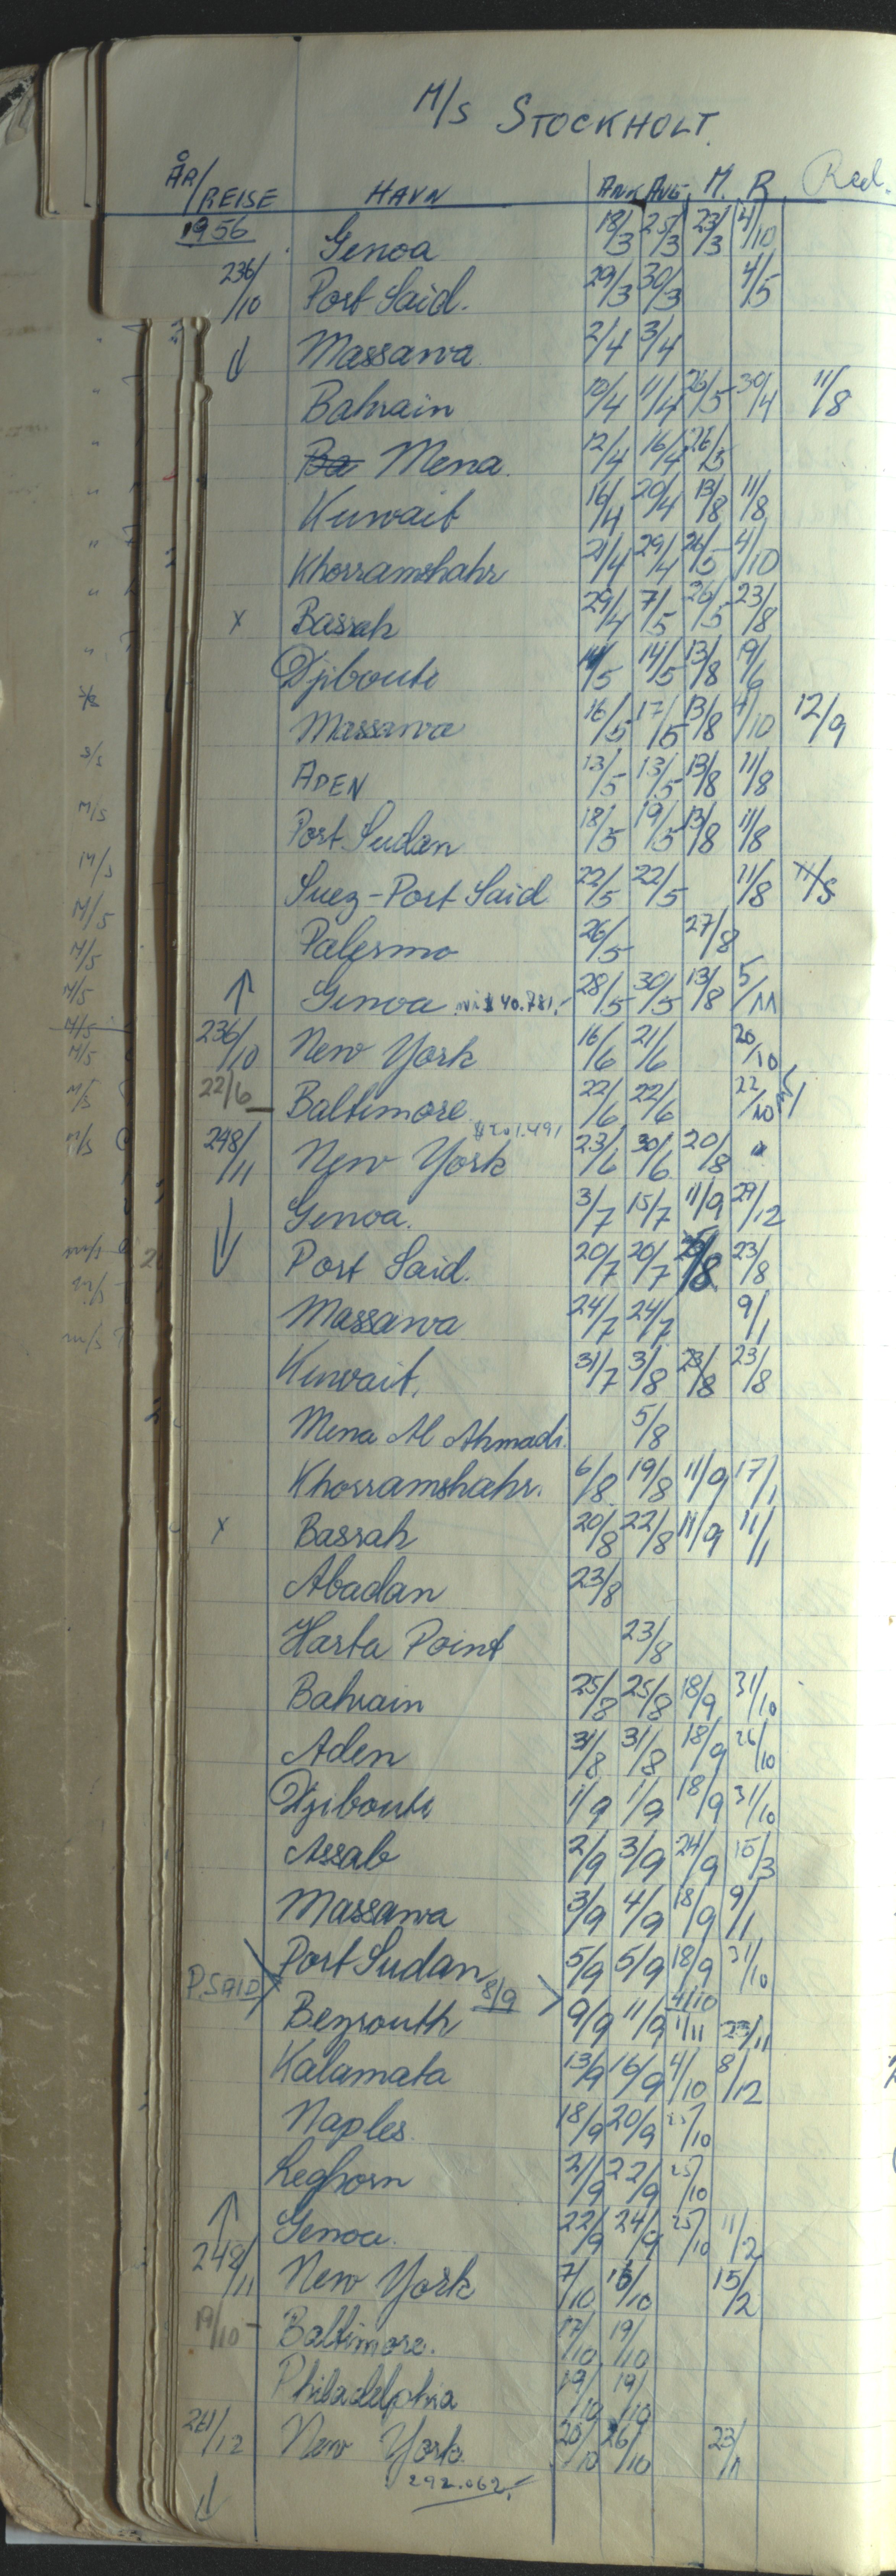 M/S STOCKHOLT.
ÅR/REISE HAVN ANK AVG. M. R. Red.
1956 Genoa 18/3 25/3 23/3 4/10
236/10 Port Said. 29/3 30/3 4/5
↓ Massawa 2/4 3/4
Bahrain 10/4 11/4 26/5 30/4 11/8
Ba Mena. 12/4 16/4 26/5
Kuwait 16/4 20/4 13/8 11/8
Khorramshahr 21/4 29/4 26/5 4/10
x Basrah 29/4 7/5 26/5 23/8
Djibouti 14/5 14/5 13/8 19/6
Massawa 16/5 17/5 13/8 4/10 12/9
ADEN 13/5 13/5 13/8 11/8
Port Sudan 18/5 19/5 13/8 11/8
Suez-Port Said 22/5 22/5 11/8 11/8
Palermo 26/5 27/8
↑ Genoa $40.781.- 28/5 30/5 13/8 5/11
236/10 New York 16/6 21/6 20/10
22/6 Baltimore 22/6 22/6 22/10
$201.491
248/11 New York 23/6 30/6 20/8 "
Genoa. 3/7 15/7 11/9 29/12
↓ Port Said. 20/7 20/7 /8 23/8
Massawa 24/7 24/7 9/1
Kuwait. 31/7 3/8 23/8 23/8
Mena Al Ahmadi. 5/8
Khorramshahr. 6/8 19/8 11/9 17/1
x Basrah 20/8 22/8 11/9 11/1
Abadan 23/8
Harta Point 23/8
Bahrain 25/8 25/8 18/9 31/10
Aden 31/8 31/8 18/9 26/10
Djibouti 1/9 1/9 18/9 31/10
Assab 2/9 3/9 24/9 15/3
Massawa 3/9 4/9 18/9 9/1
Port Sudan 5/9 5/9 18/9 31/10
P.SAID 8/9 4/10
Beyrouth 9/9 11/9 1/11 23/11
Kalamata 13/9 16/9 4/10 8/12
Naples. 18/9 20/9 25/10
Leghorn 21/9 22/9 25/10
↑ Genoa. 22/9 24/9 25/10 11/2
248/11 New York 7/10 16/10 15/2
19/10 - Baltimore. 17/10 19/10
Philadelphia 19/10 19/10
261/12 New York. 20/10 26/10 23/1
↓ 292.062.-